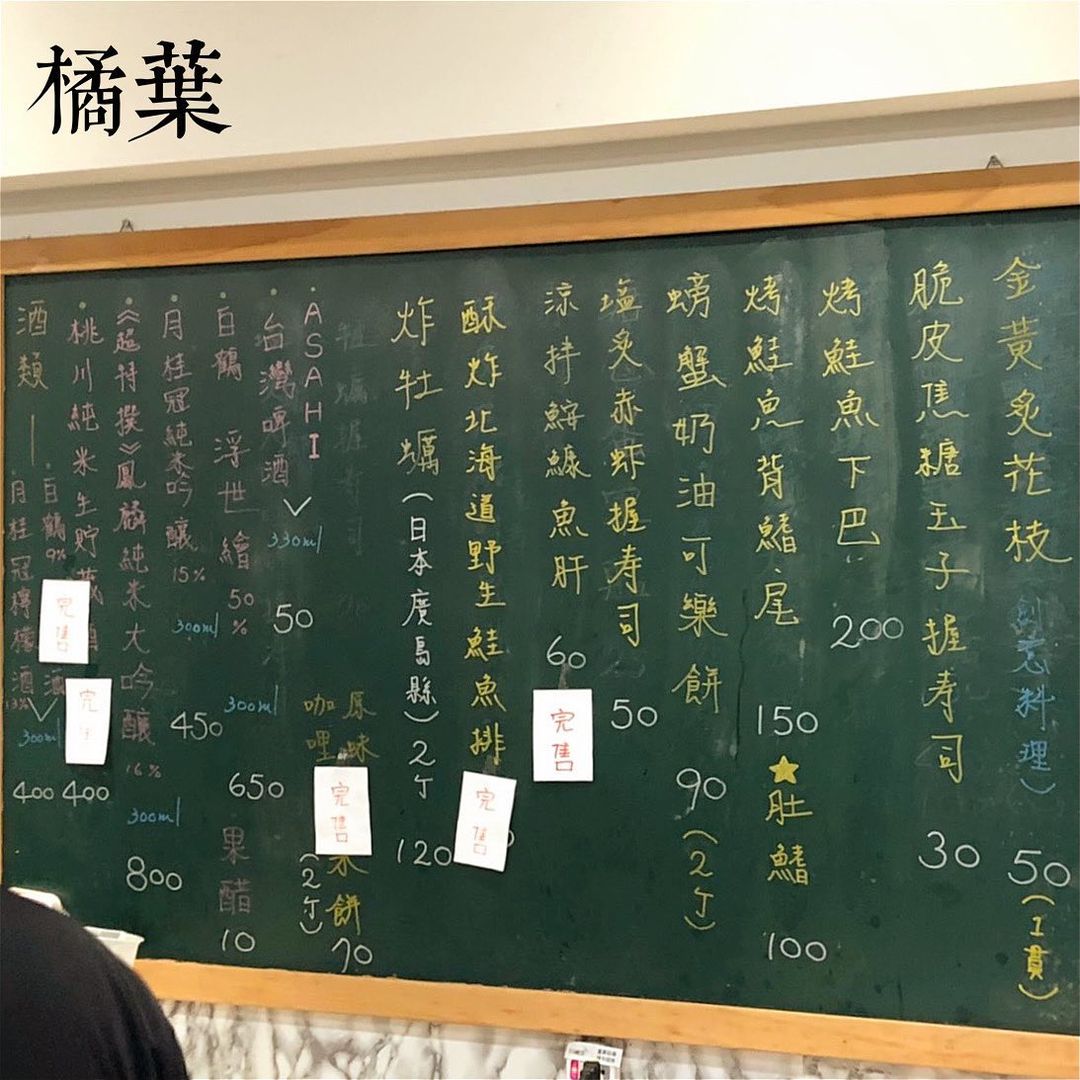 橘葉
金黃炙花枝(創意料理)
50
(1貫)
脆皮焦糖玉子握寿司
30
烤鮭魚下巴
200
烤鮭魚背鰭.尾
150
★肚鰭
100
螃蟹奶油可樂餅
90
(2个)
塩炙赤虾握寿司
50
涼拌鮟鱇魚肝
60
完售
酥炸北海道野生鮭魚排
完售
炸牡蠣(日本廣島縣)2个
120
原味
咖哩
完售
米餅
(2个)
70
ASAHI
台灣啤酒
330ml
50
白鶴 浮世繪
50%
300ml
650
果醋
10
月桂冠純米吟釀
15%
300ml
450
《超特撰》鳳麟純米大吟釀
16%
300ml
800
桃川純米生貯
完售
酒類—
白鶴
9%
酒
完售
400
月桂冠檸檬酒
13%
300ml
400